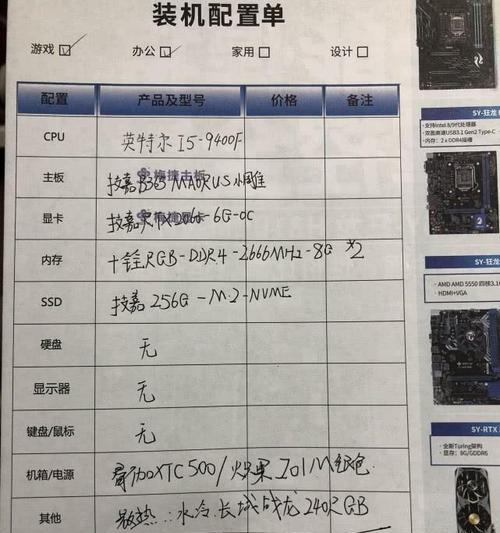 装机配置单
游戏 ☑ 办公 ☑ 家用 □ 设计 □
配置 产品及型号 价格 备注
CPU 英特尔 I5-9400F
主板 技嘉B365 MAORUS 小雕
显卡 技嘉 RTX2060-6G-OC
内存 十铨RGB-DDR4-2666MHZ-8G*2
SSD 技嘉256G-M·2-NVME
硬盘 无
显示器 无
键盘/鼠标 无
机箱/电源 XTC500/ 701M 银色
其他 散热:水冷.长城战龙240RGB
SY-狂龙
支持Intel 8/9代处理器
双盈高速USB3.1 Gen2 Type-C
内存:2 x DDR4插槽
SY-狂龙
AMD AMD 5550 四核3.1
HDMI+VGA
SY-RTX
全新Turing架构
显存:8G/GDDR6